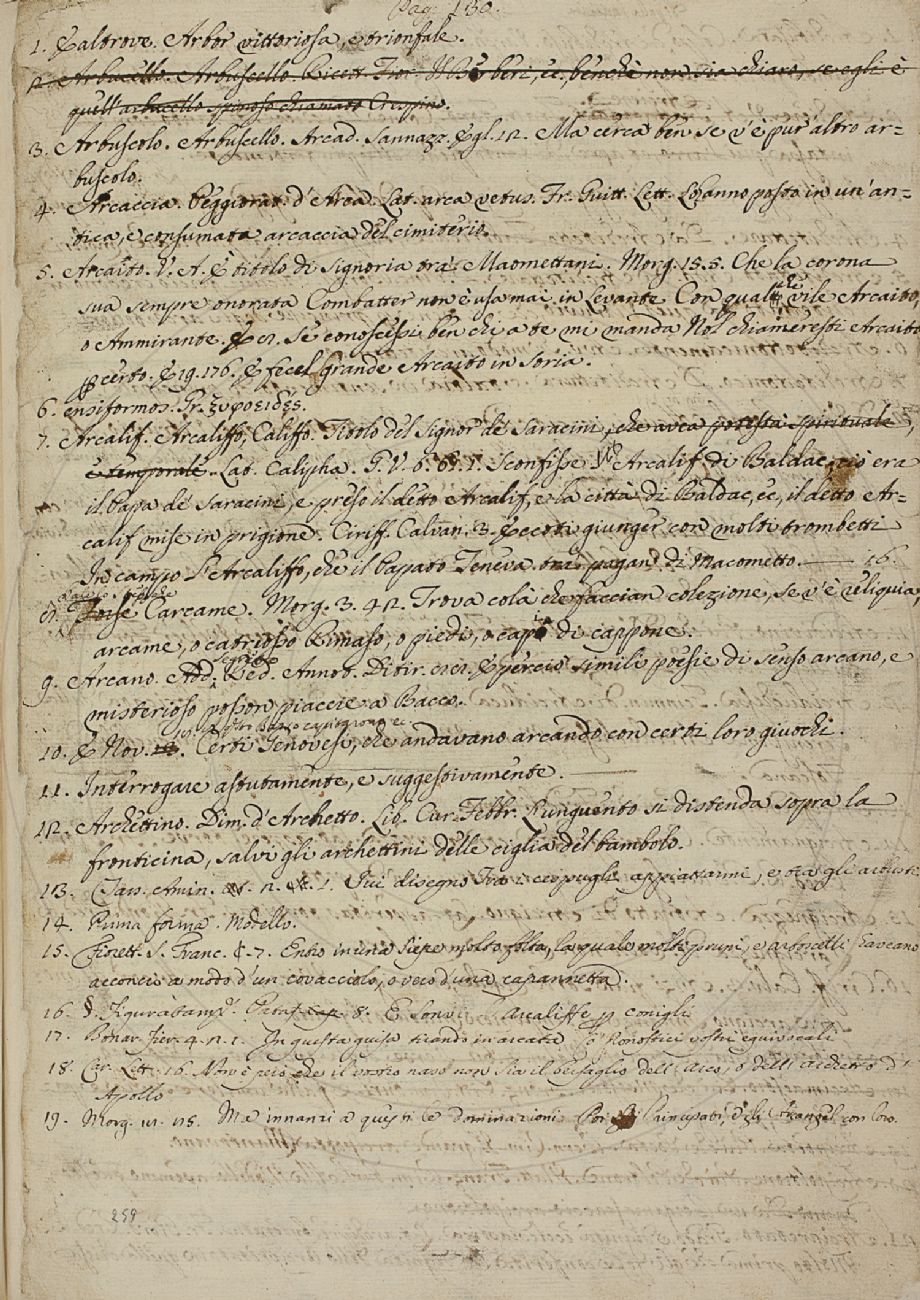 Pag. 130.
1. E altrove. Arbor vittoriosa, e trionfale.
2. Arbucello. Arbuscello. Ricett. Fior. beri, ec. benchè non sia chiaro, se egli è
quell'arbucello spinoso chiamato Crespino.
3. Arbuscolo. Arbuscello. Arcad. Sannazz. Egl. 12. Ma cerca ben se v'è pur altro ar-
buscolo.
4. Arcaccia. Peggiorat. d'Arca. Lat. arca vetus. Fr. Guitt. Lett. L'hanno posto in un'an-
tica, e consumata arcaccia del cimiterio.
5. Arcaito. V. A. E titolo di signoria tra' Maomettani. Morg. 15. 5. Che la corona
sua sempre onorata Combatter non è usa mai in Levante Con qual vile Arcaito,
o Ammirante. E 21. Se conoscessi ben chi a te mi manda Nol chiameresti Arcaito
per certo. E 19. 176. E fecel grande Arcaito in Soria.
6. ensiformos. Gr. ξυροειδές.
7. Arcalif. Arcaliffo, Califfo. Titolo del Signor de' Saracini, che avea potestà spirituale,
e temporale. Lat. Calipha. G. V. 6. 61. 1. Sconfisse l'Arcalif di Baldac, ciò era
il Papa de' Saracini, e preso il detto Arcalif, e la città di Baldac, ec., il detto Ar-
calif mise in prigione. Ciriff. Calvan. 3. Eccoti giunger con molti trombetti
In campo l'Arcaliffo, che il Papato Teneva tra' pagan di Macometto. 16.
8. Carcame. Morg. 3. 42. Trova colà che faccian colezione, se v'è reliquia,
arcame, o catriosso Rimaso, o piedi, o capo di cappone.
9. Arcano. Add. Red. Annot. Ditir. 21. E perciò simili poesie di senso arcano, e
misterioso posson piaccie a Bacco.
10. E Nov. Certi Genovesi, che andavano arcando con certi loro giuochi.
11. Interrogare astutamente, e suggestivamente.
12. Archettino. Dim. d'Archetto. Lib. Cur. Febbr. L'unguento si distenda sopra la
fronticina, salvi gli archettini delle ciglia del bambolo.
13. Tass. Amin. 2. 1. Ivi disegno Tra i cespugli appiattarmi, e tra gli arbusti
14. Prima forma. Modello.
15. Fiorett. S. Franc. 7. Entrò in una siepe molto folta, la quale molti pruni, e arboscelli haveano
acconcio a modo d'un covacciolo, o vero d'una capannetta.
16. §. Figuratam. Pataf. cap. 8. E sono Arcaliffe per conigli
17. Bonar. Fier. 4. 2. 1. In questa guisa tirando in arcata I pronostici vostri equivocali
18. Car. Lett. 16. Non è però che il vostro naso non sia il bersaglio dell'arco, o dell'archetto d'
Apollo
19. Morg. Ma innanzi a questi le dominazioni Poi gli Principati, e gli Arcangel con loro.
259